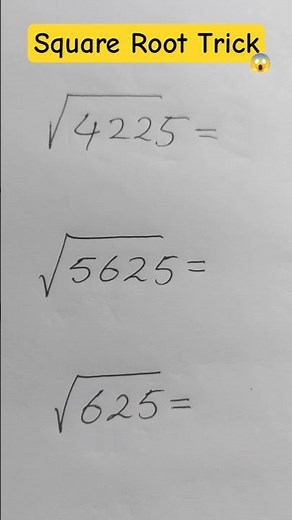 Square Root Trick😱
√4225 =
√5625 =
√625 =